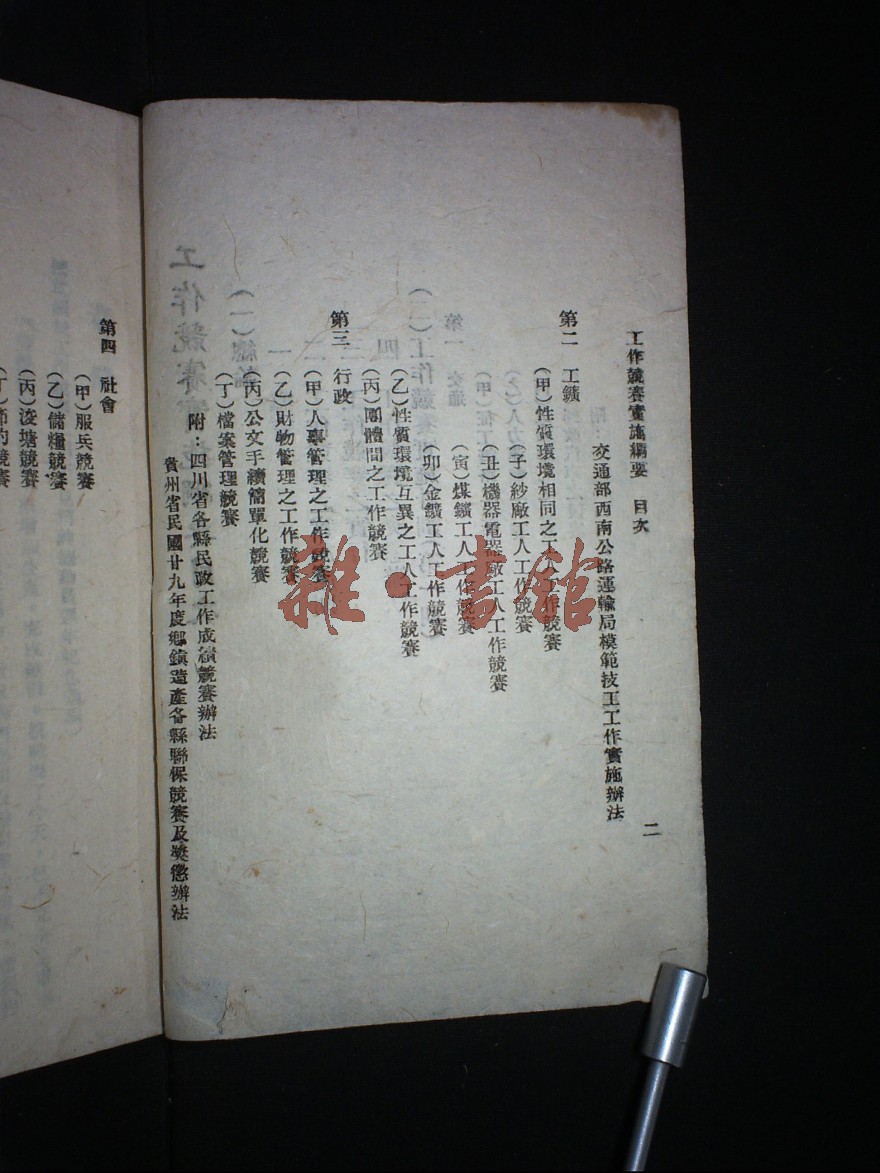 工作競賽實施綱要　目次
二
交通部西南公路運輸局模範技工工作實施辦法
第二　工鑛
(甲)性質環境相同之工人工作競賽
(子)紗廠工人工作競賽
(丑)機器電器廠工人工作競賽
(寅)煤鑛工人工作競賽
(卯)金鑛工人工作競賽
(乙)性質環境互異之工人工作競賽
(丙)團體間之工作競賽
第三　行政
(甲)人事管理之工作競賽
(乙)財物管理之工作競賽
(丙)公文手續簡單化競賽
(丁)檔案管理競賽
附：四川省各縣民政工作成績競賽辦法
貴州省民國廿九年度鄉鎮造產各縣聯保競賽及奬懲辦法
第四　社會
(甲)服兵競賽
(乙)儲糧競賽
(丙)浚塘競賽
(丁)節約競賽
雜·書館